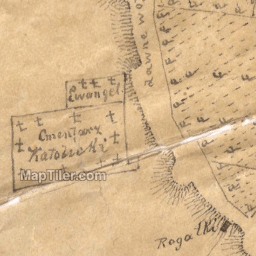 Ewangel.
Cmentarz
Katolicki
dawne wo
Rogalki
MapTiler.com